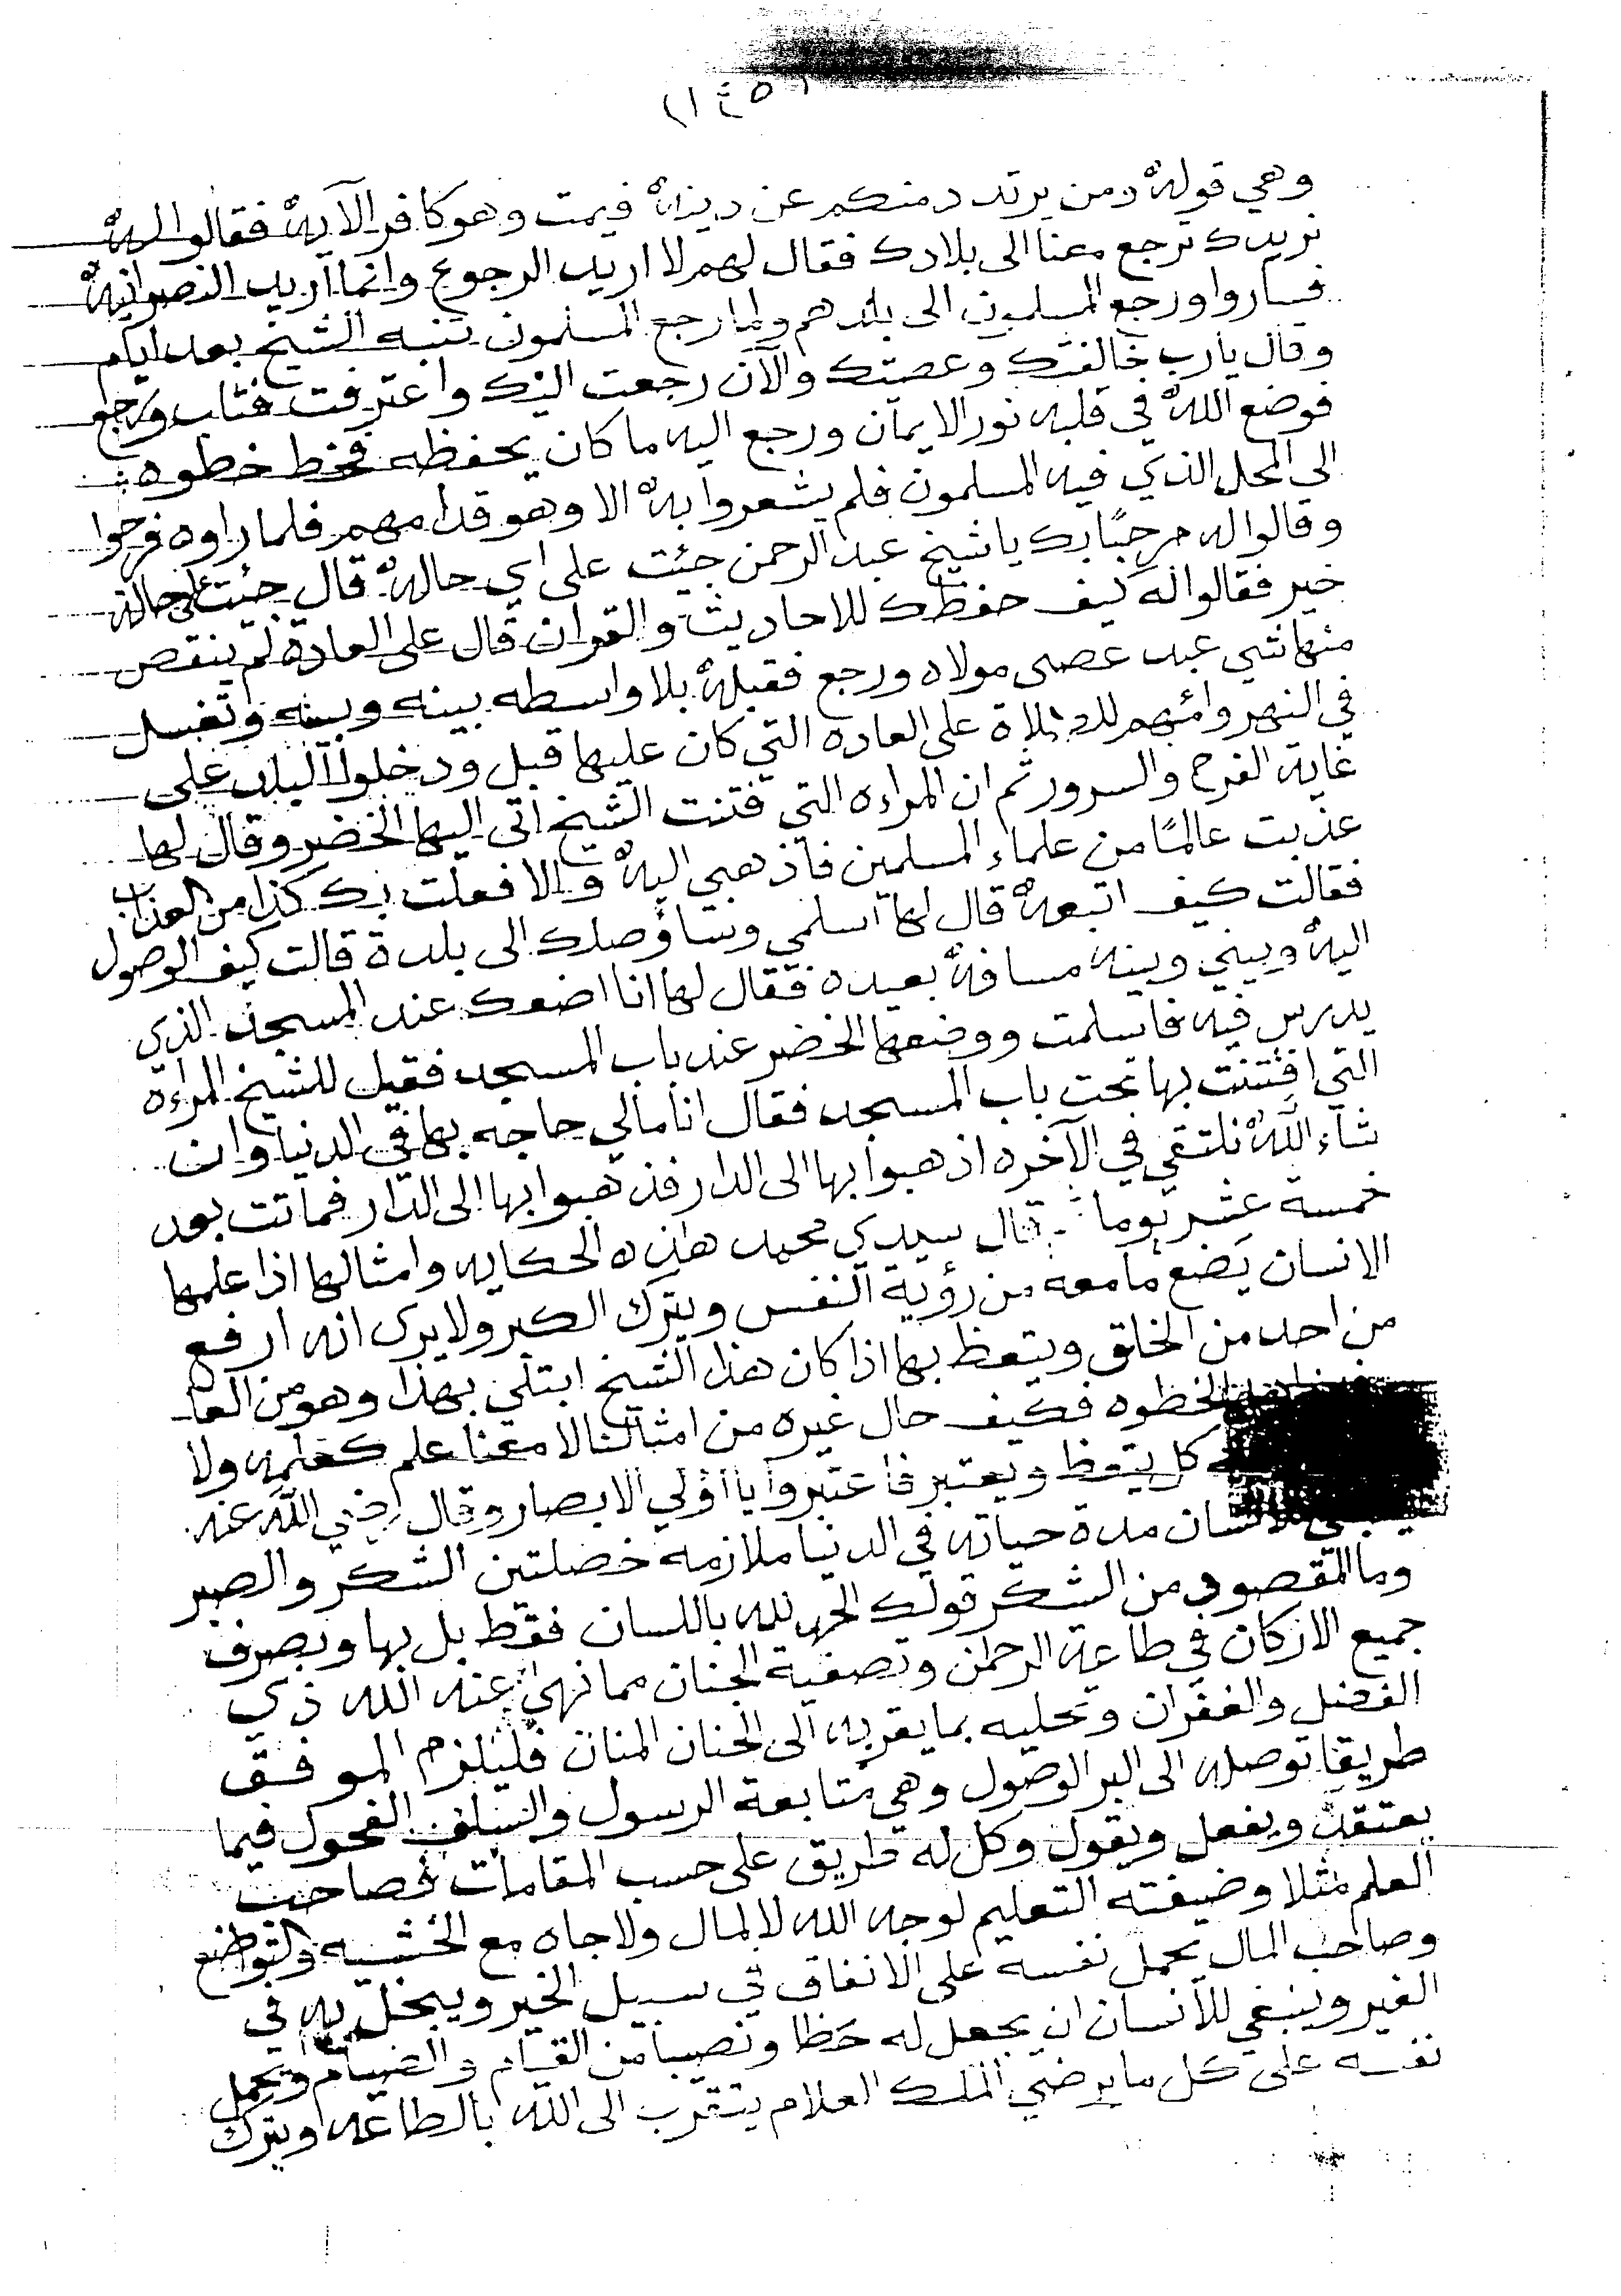 (١٤٥)
وهي قوله ومن يرتدد منكم عن دينه فيمت وهو كافر الآيه فقالوا له
نريدك ترجع معنا الى بلادك فقال لهم لا اريد الرجوع وانما اريد النصرانيه
فساروا ورجع المسلمون الى بلدهم ولما رجع المسلمون تنبه الشيخ بعد ايام
وقال يارب خالفتك وعصيتك والآن رجعت اليك واعترفت فتاب ورجع
فوضع الله في قلبه نور الايمان ورجع اليه ما كان يحفظه فخط خطوه
الى المحل الذي فيه المسلمون فلم يشعروا به الا وهو قدامهم فلما راوه فرحوا
وقالوا له مرحبًا بك يا شيخ عبد الرحمن جئت على اي حاله قال جئت على حالة
خير فقالوا له كيف حفظك للاحاديث والقران قال على العادة لم ينقص
منها شي عبد عصى مولاه ورجع فقبله بلا واسطه بينه وبينه وتغسل
في النهر وامهم للصلاة على العاده التي كان عليها قبل ودخلوا البلد على
غاية الفرح والسرور ثم ان المراءه التي فتنت الشيخ اتى اليها الخضر وقال لها
عذبت عالمًا من علماء المسلمين فاذهبي اليه والا فعلت بك كذا من العذاب
فقالت كيف اتبعه قال لها اسلمي وساوصلك الى بلدة قالت كيف الوصول
اليه وبيني وبينه مسافه بعيده فقال لها انا اضعك عند المسجد الذي
يدرس فيه فاسلمت ووضعها الخضر عند باب المسجد فقيل للشيخ المراءة
التي افتتنت بها تحت باب المسجد فقال انا مالي حاجه بها في الدنيا وان
شاء الله نلتقي في الآخره اذهبوا بها الى الدار فذهبوا بها الى الدار فماتت بعد
خمسة عشر يوما قال سيدي محمد هذه الحكايه وامثالها اذا علمها
الانسان يَضع مامعه من رؤية النفس ويترك الكبر ولا يرى انه ارفع
من احد من الخلق ويتعظ بها اذا كان هذا الشيخ ابتلي بهذا وهو من العلما
الخطوه فكيف حال غيره من امثالنا لا معنا علم كعلمه ولا
كل يتعظ ويعتبر فاعتبروا يا اؤلي الابصار وقال رضي الله عنه
ينبغي للانسان مدة حياته في الدنيا ملازمه خصلتين الشكر والصبر
وما المقصود من الشكر قولك الحمد لله باللسان فقط بل بها وبصرف
جميع الاركان في طاعة الرحمن وتصفية الجنان مما نهى عنه الله ذي
الفضل والغفران وتحليه بما يقربه الى الحنان المنان فليلزم الموفق
طريقا توصله الى البر الوصول وهي متابعة الرسول والسلف الفحول فيما
يعتقد ويفعل ويقول وكل له طريق على حسب المقامات فصاحب
العلم مثلا وضيفته التعليم لوجه الله لا لمال ولا جاه مع الخشيه والتواضع
وصاحب المال يحمل نفسه على الانفاق في سبيل الخير ويبخل به في
الغير وينبغي للانسان ان يجعل له حَظا ونصيبا من القيام والصيام ويحمل
نفسه على كل ما يرضي الملك العلام يتقرب الى الله بالطاعه ويترك